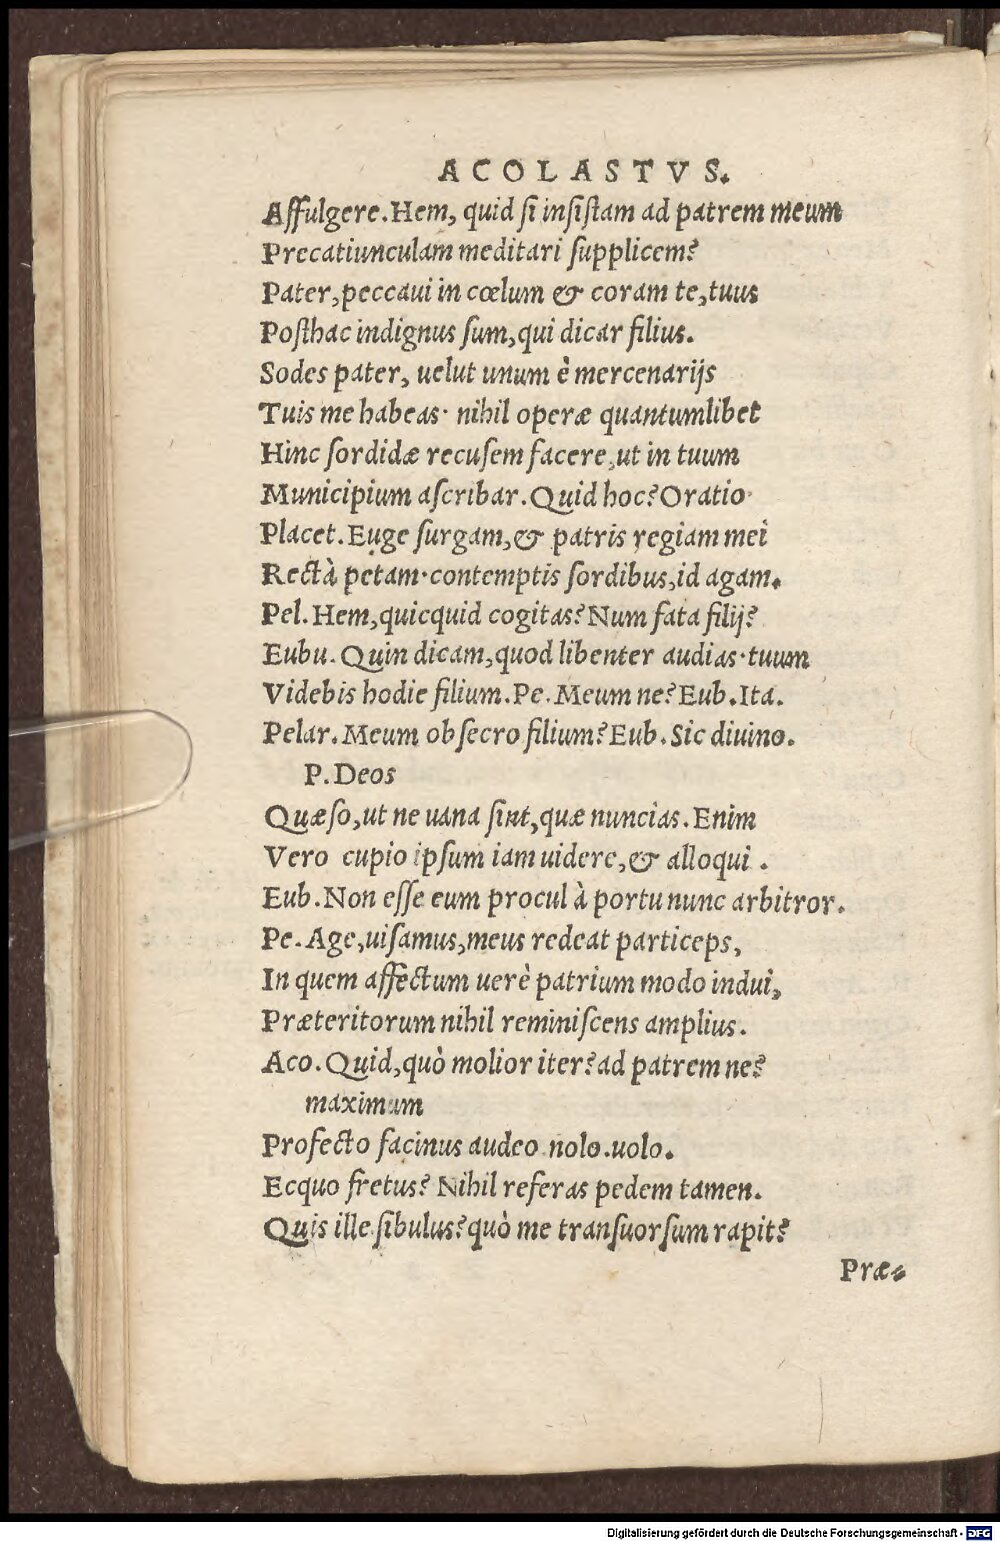 ACOLASTVS.
Affulgere. Hem, quid ſi inſiſtam ad patrem meum
Precatiunculam meditari ſupplicem?
Pater, peccaui in cœlum & coram te, tuus
Poſthac indignus ſum, qui dicar filius.
Sodes pater, uelut unum è mercenarijs
Tuis me habeas· nihil operæ quantumlibet
Hinc ſordidæ recuſem facere, ut in tuum
Municipium aſcribar. Quid hoc? Oratio
Placet. Euge ſurgam, & patris regiam mei
Rectà petam· contemptis ſordibus, id agam.
Pel. Hem, quicquid cogitas? Num fata filij?
Eubu. Quin dicam, quod libenter audias· tuum
Videbis hodie filium. Pe. Meum ne? Eub. Ita.
Pelar. Meum obſecro filium? Eub. Sic diuino.
P. Deos
Quæſo, ut ne uana ſint, quæ nuncias. Enim
Vero cupio ipſum iam uidere, & alloqui.
Eub. Non eſſe eum procul à portu nunc arbitror.
Pe. Age, uiſamus, meus redeat particeps,
In quem affectum uerè patrium modo indui,
Præteritorum nihil reminiſcens amplius.
Aco. Quid, quò molior iter? ad patrem ne?
maximum
Profecto facinus audeo nolo. uolo.
Ecquo fretus? Nihil referas pedem tamen.
Quis ille ſibulus? quò me tranſuorſum rapit?
Præ-
Digitalisierung gefördert durch die Deutsche Forschungsgemeinschaft - DFG